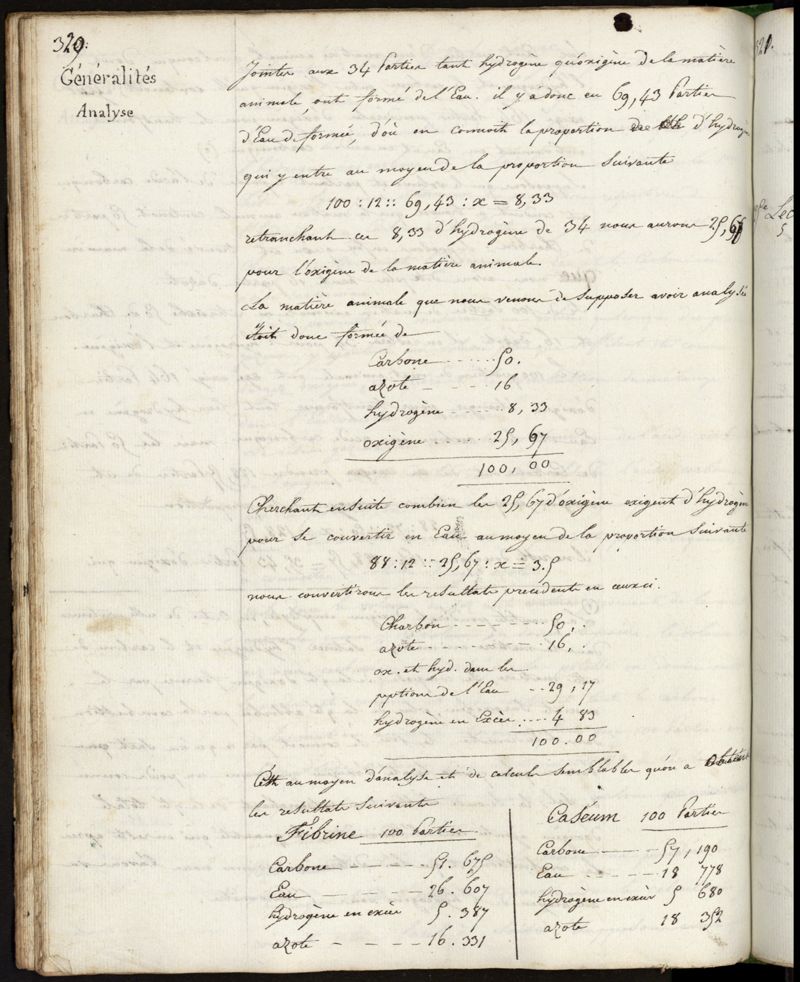 320.
Généralités
Analyse
Jointes aux 34 Parties tant hydrogène qu'oxigène de la matière
animale, ont formé de l'Eau. il y a donc eu 69,43 Parties
d'Eau de formée, d'où on connoit la proportion d'hydrogène
qui y entre au moyen de la proportion suivante
100 : 12 :: 69,43 : x = 8,33
retranchant ces 8,33 d'hydrogène de 34 nous aurons 25,67
pour l'oxigène de la matière animale.
La matière animale que nous venons de supposer avoir analysée
étoit donc formée de
Carbone ...... 50.
azote - - - - 16
hydrogène ...... 8, 33
oxigène ...... 25, 67
100, 00
Cherchant ensuite combien les 25,67 d'oxigène exigent d'hydrogène
pour se convertir en Eau au moyen de la proportion suivante
88 : 12 :: 25,67 : x = 3.5
nous convertirons les resultats precedents en ceux ci.
Charbon - - - - - - 50, .
azote - - - - - - 16, .
ox. et hyd. dans les
pptions de l'Eau - - 29, 17
hydrogène en Excès .... 4 83
100.00
C'est au moyen d'analyse et de calculs semblables qu'on a obtenu
les resultats suivants
Fibrine 100 Parties
Carbone - - - - - 51. 675
Eau - - - - - 26. 607
hydrogène en excès 5. 387
azote - - - - 16. 331
Caséum 100 Parties
Carbone - - - - 57, 190
Eau - - - - - 18 778
hydrogène en excès 5 680
azote 18 352
321.
Lec
5